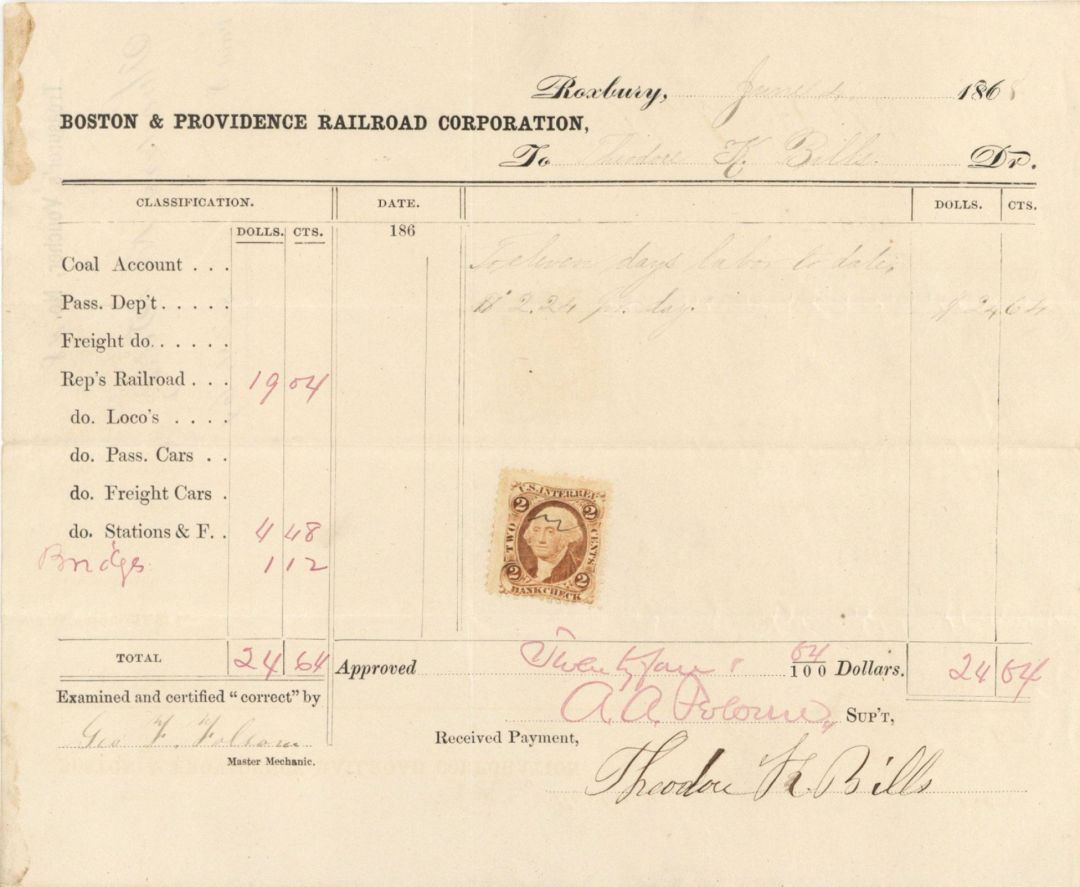 Roxbury, June 4, 1868
BOSTON & PROVIDENCE RAILROAD CORPORATION,
To Theodore K. Bills. Dr.
CLASSIFICATION. DATE. DOLLS. CTS.
DOLLS. CTS. 186
Coal Account . . . To eleven days labor to date,
Pass. Dep't . . . . . @ 2.24 pr. day. $ 24 64
Freight do. . . . . .
Rep's Railroad . . . 19 04
do. Loco's . . . .
do. Pass. Cars . .
do. Freight Cars .
do. Stations & F. . 4 48
Bridges 1 12
U.S. INTER. REV.
2 2
TWO CENTS
2 2
BANK CHECK
TOTAL 24 64 Approved Twenty four 64/100 Dollars. 24 64
Examined and certified "correct" by
A. A. Folsom, SUP'T,
Geo F. Folsom
Received Payment,
Master Mechanic.
Theodore K. Bills